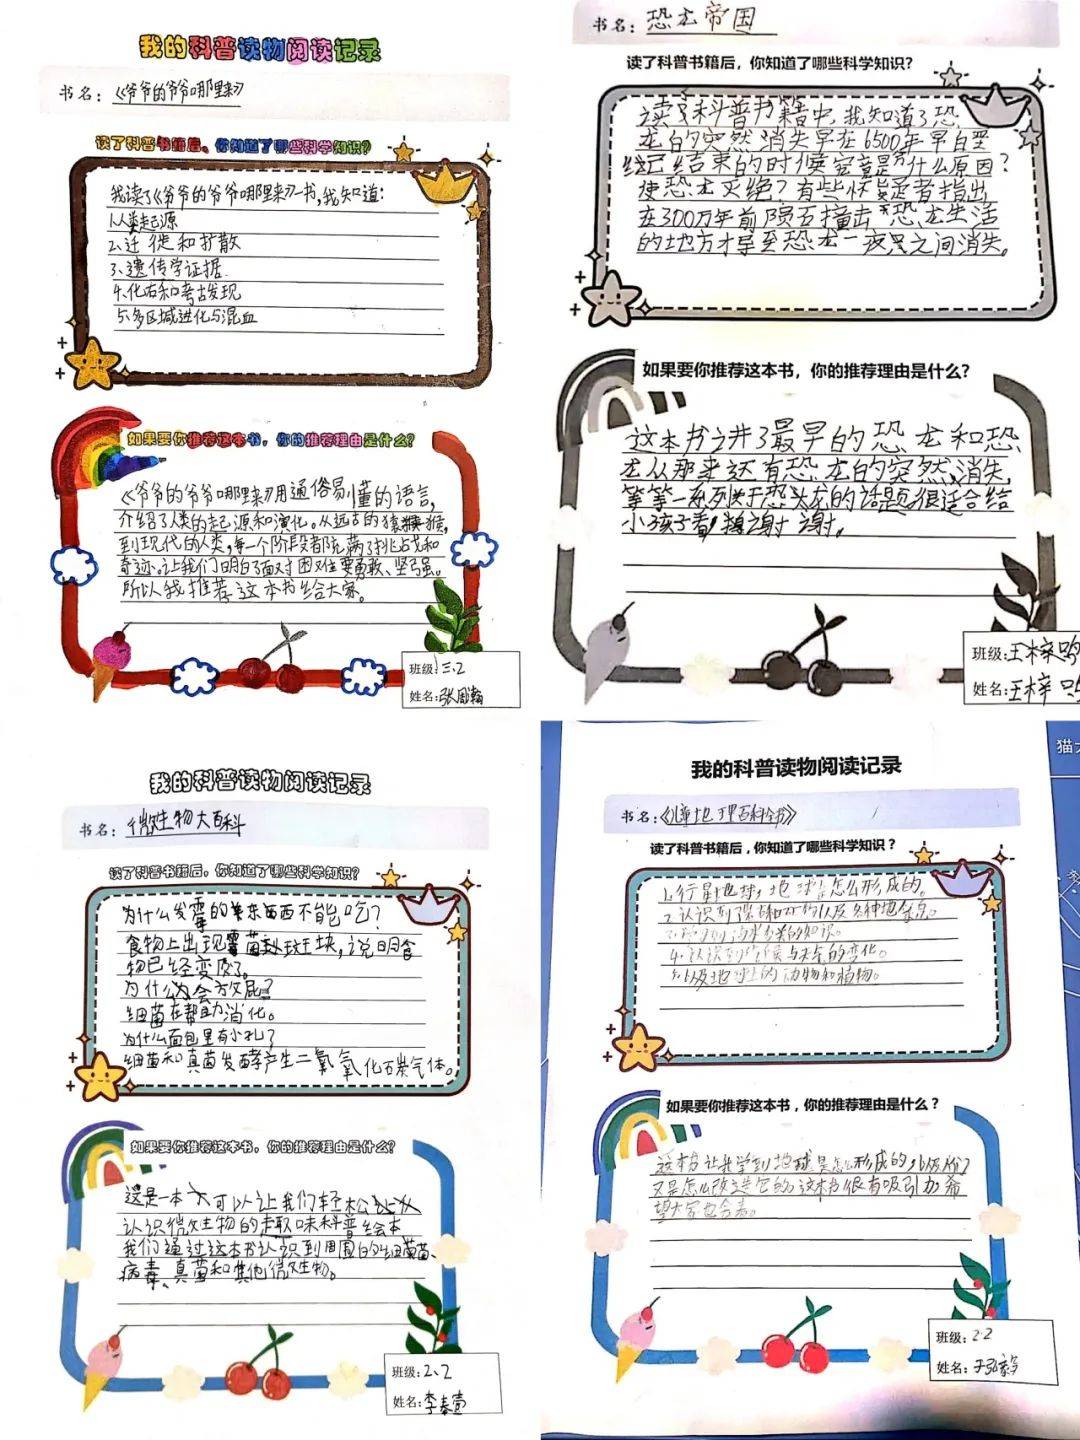 我的科普读物阅读记录
书名：《爷爷的爷爷哪里来》
读了科普书籍后，你知道了哪些科学知识？
我读了《爷爷的爷爷哪里来》一书，我知道：
1.人类起源
2、迁徙和扩散
3、遗传学证据
4、化石和考古发现
5、多区域进化与混血
如果要你推荐这本书，你的推荐理由是什么？
《爷爷的爷爷哪里来》用通俗易懂的语言，
介绍了人类的起源和演化。从远古的猿猴，
到现代的人类，每一个阶段都充满了挑战和
奇迹。让我们明白了面对困难要勇敢、坚强。
所以我推荐这本书给大家。
班级：三.2
姓名：张周翰
书名：恐龙帝国
读了科普书籍后，你知道了哪些科学知识？
读了科普书籍中，我知道了恐
龙的突然消失早在6500年早白垩
纪已结束的时候究竟是什么原因？
使恐龙灭绝？有些怀疑者指出
在300万年前陨石撞击恐龙生活
的地方才导至恐龙一夜只之间消失。
如果要你推荐这本书，你的推荐理由是什么？
这本书讲了最早的恐龙和恐
龙从那来还有恐龙的突然消失
等等一系列关于恐龙的话题很适合给
小孩子看，谢谢。
班级：王梓鸣
姓名：王梓鸣
我的科普读物阅读记录
书名：微生物大百科
读了科普书籍后，你知道了哪些科学知识？
为什么发霉的东西不能吃？
食物上出现霉菌斑块，说明食
物已经变质了。
为什么会放屁？
细菌在帮助消化。
为什么面包里有小孔？
细菌和真菌发酵产生二氧化碳气体。
如果要你推荐这本书，你的推荐理由是什么？
这是一本可以让我们轻松
认识微生物的趣味科普绘本
我们通过这本书认识到周围的细菌、
病毒、真菌和其他微生物。
班级：2、2
姓名：李秦壹
猫
我的科普读物阅读记录
书名：《儿童地理百科全书》
读了科普书籍后，你知道了哪些科学知识？
1.行星地球，地球是怎么形成的。
2.认识到了岩石和矿物以及各种地点。
的知识。
4.认识到未来的变化。
5.以及地球上的动物和植物。
如果要你推荐这本书，你的推荐理由是什么？
这本书让我学到地球是怎么形成的，人们
又是怎么改造它的，这本书很有吸引力，希
望大家也会看。
班级：2.2
姓名：